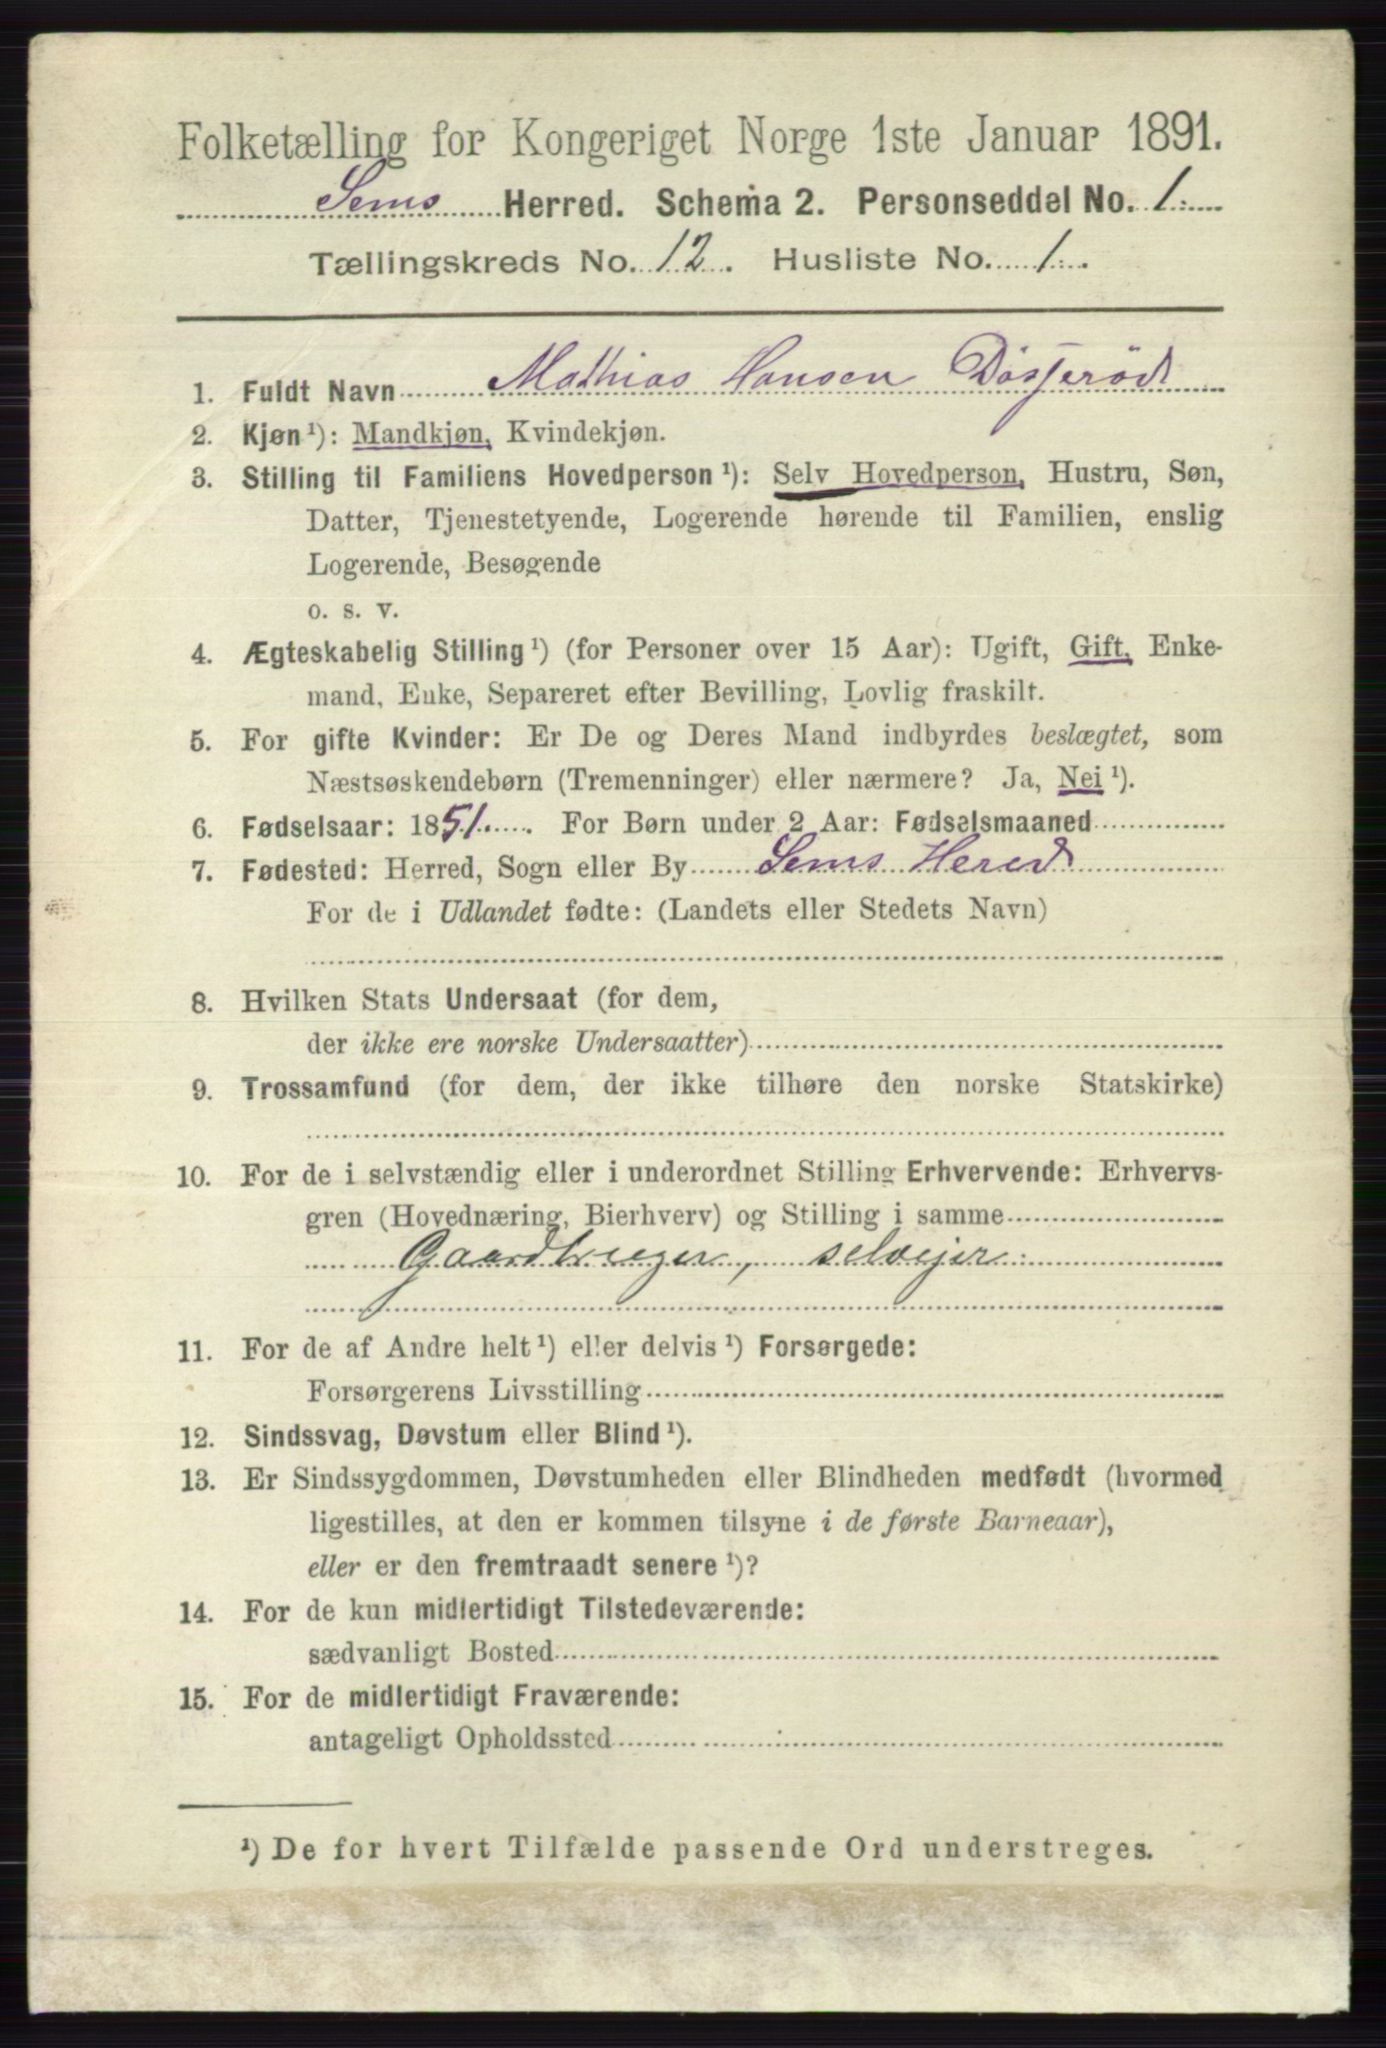 Folketælling for Kongeriget Norge 1ste Januar 1891.
Sems Herred. Schema 2. Personseddel No. 1.
Tællingskreds No. 12. Husliste No. 1.
1. Fuldt Navn Mathias Hansen
2. Kjøn ¹): Mandkjøn, Kvindekjøn.
3. Stilling til Familiens Hovedperson ¹): Selv Hovedperson, Hustru, Søn,
Datter, Tjenestetyende, Logerende hørende til Familien, enslig
Logerende, Besøgende
o. s. v.
4. Ægteskabelig Stilling ¹) (for Personer over 15 Aar): Ugift, Gift, Enke-
mand, Enke, Separeret efter Bevilling, Lovlig fraskilt.
5. For gifte Kvinder: Er De og Deres Mand indbyrdes beslægtet, som
Næstsøskendebørn (Tremenninger) eller nærmere? Ja, Nei ¹).
6. Fødselsaar: 1851. For Børn under 2 Aar: Fødselsmaaned
7. Fødested: Herred, Sogn eller By Sems Hered
For de i Udlandet fødte: (Landets eller Stedets Navn)
8. Hvilken Stats Undersaat (for dem,
der ikke ere norske Undersaatter)
9. Trossamfund (for dem, der ikke tilhøre den norske Statskirke)
10. For de i selvstændig eller i underordnet Stilling Erhvervende: Erhvervs-
gren (Hovednæring, Bierhverv) og Stilling i samme
Gaardbruger, selvejer
11. For de af Andre helt ¹) eller delvis ¹) Forsørgede:
Forsørgerens Livsstilling
12. Sindssvag, Døvstum eller Blind ¹).
13. Er Sindssygdommen, Døvstumheden eller Blindheden medfødt (hvormed
ligestilles, at den er kommen tilsyne i de første Barneaar),
eller er den fremtraadt senere ¹)?
14. For de kun midlertidigt Tilstedeværende:
sædvanligt Bosted
15. For de midlertidigt Fraværende:
antageligt Opholdssted
¹) De for hvert Tilfælde passende Ord understreges.